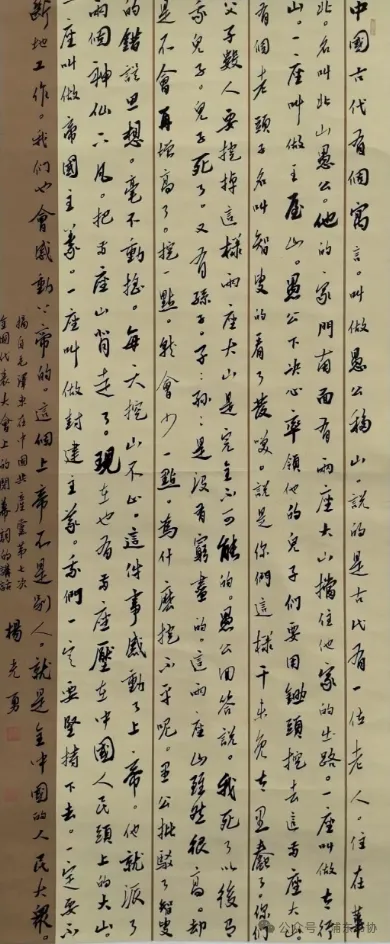 中國古代有個寓言。叫做愚公移山。說的是古代有一位老人。住在華
北。名叫北山愚公。他的家門南面有兩座大山擋住他家的出路。一座叫做太行
山。一座叫做王屋山。愚公下决心率領他的兒子們要用鋤頭挖去這兩座大山。
有個老頭子名叫智叟的看了發笑。說是你們這樣干未免太愚蠢了。你們
父子數人要挖掉這樣兩座大山是完全不可能的。愚公回答說。我死了以後有
我兒子。兒子死了。又有孫子。子孫:是没有窮盡的。這兩座山雖然很高。却
是不會再增高了。挖一點。就會少一點。爲什麽挖不平呢。愚公批駁了智叟
的錯誤思想。毫不動搖。每天挖山不止。這件事感動了上帝。他就派了
兩個神仙下凡。把兩座山背走了。現在也有兩座壓在中國人民頭上的大山。
一座叫做帝國主義。一座叫做封建主義。我們一定要堅持下去。一定要不
斷地工作。我們也會感動上帝的。這個上帝不是别人。就是全中國的人民大衆。
摘自毛澤東在中國共產黨第七次
全國代表大會上的閉幕詞的講話
楊光勇
公众号·浦东书协